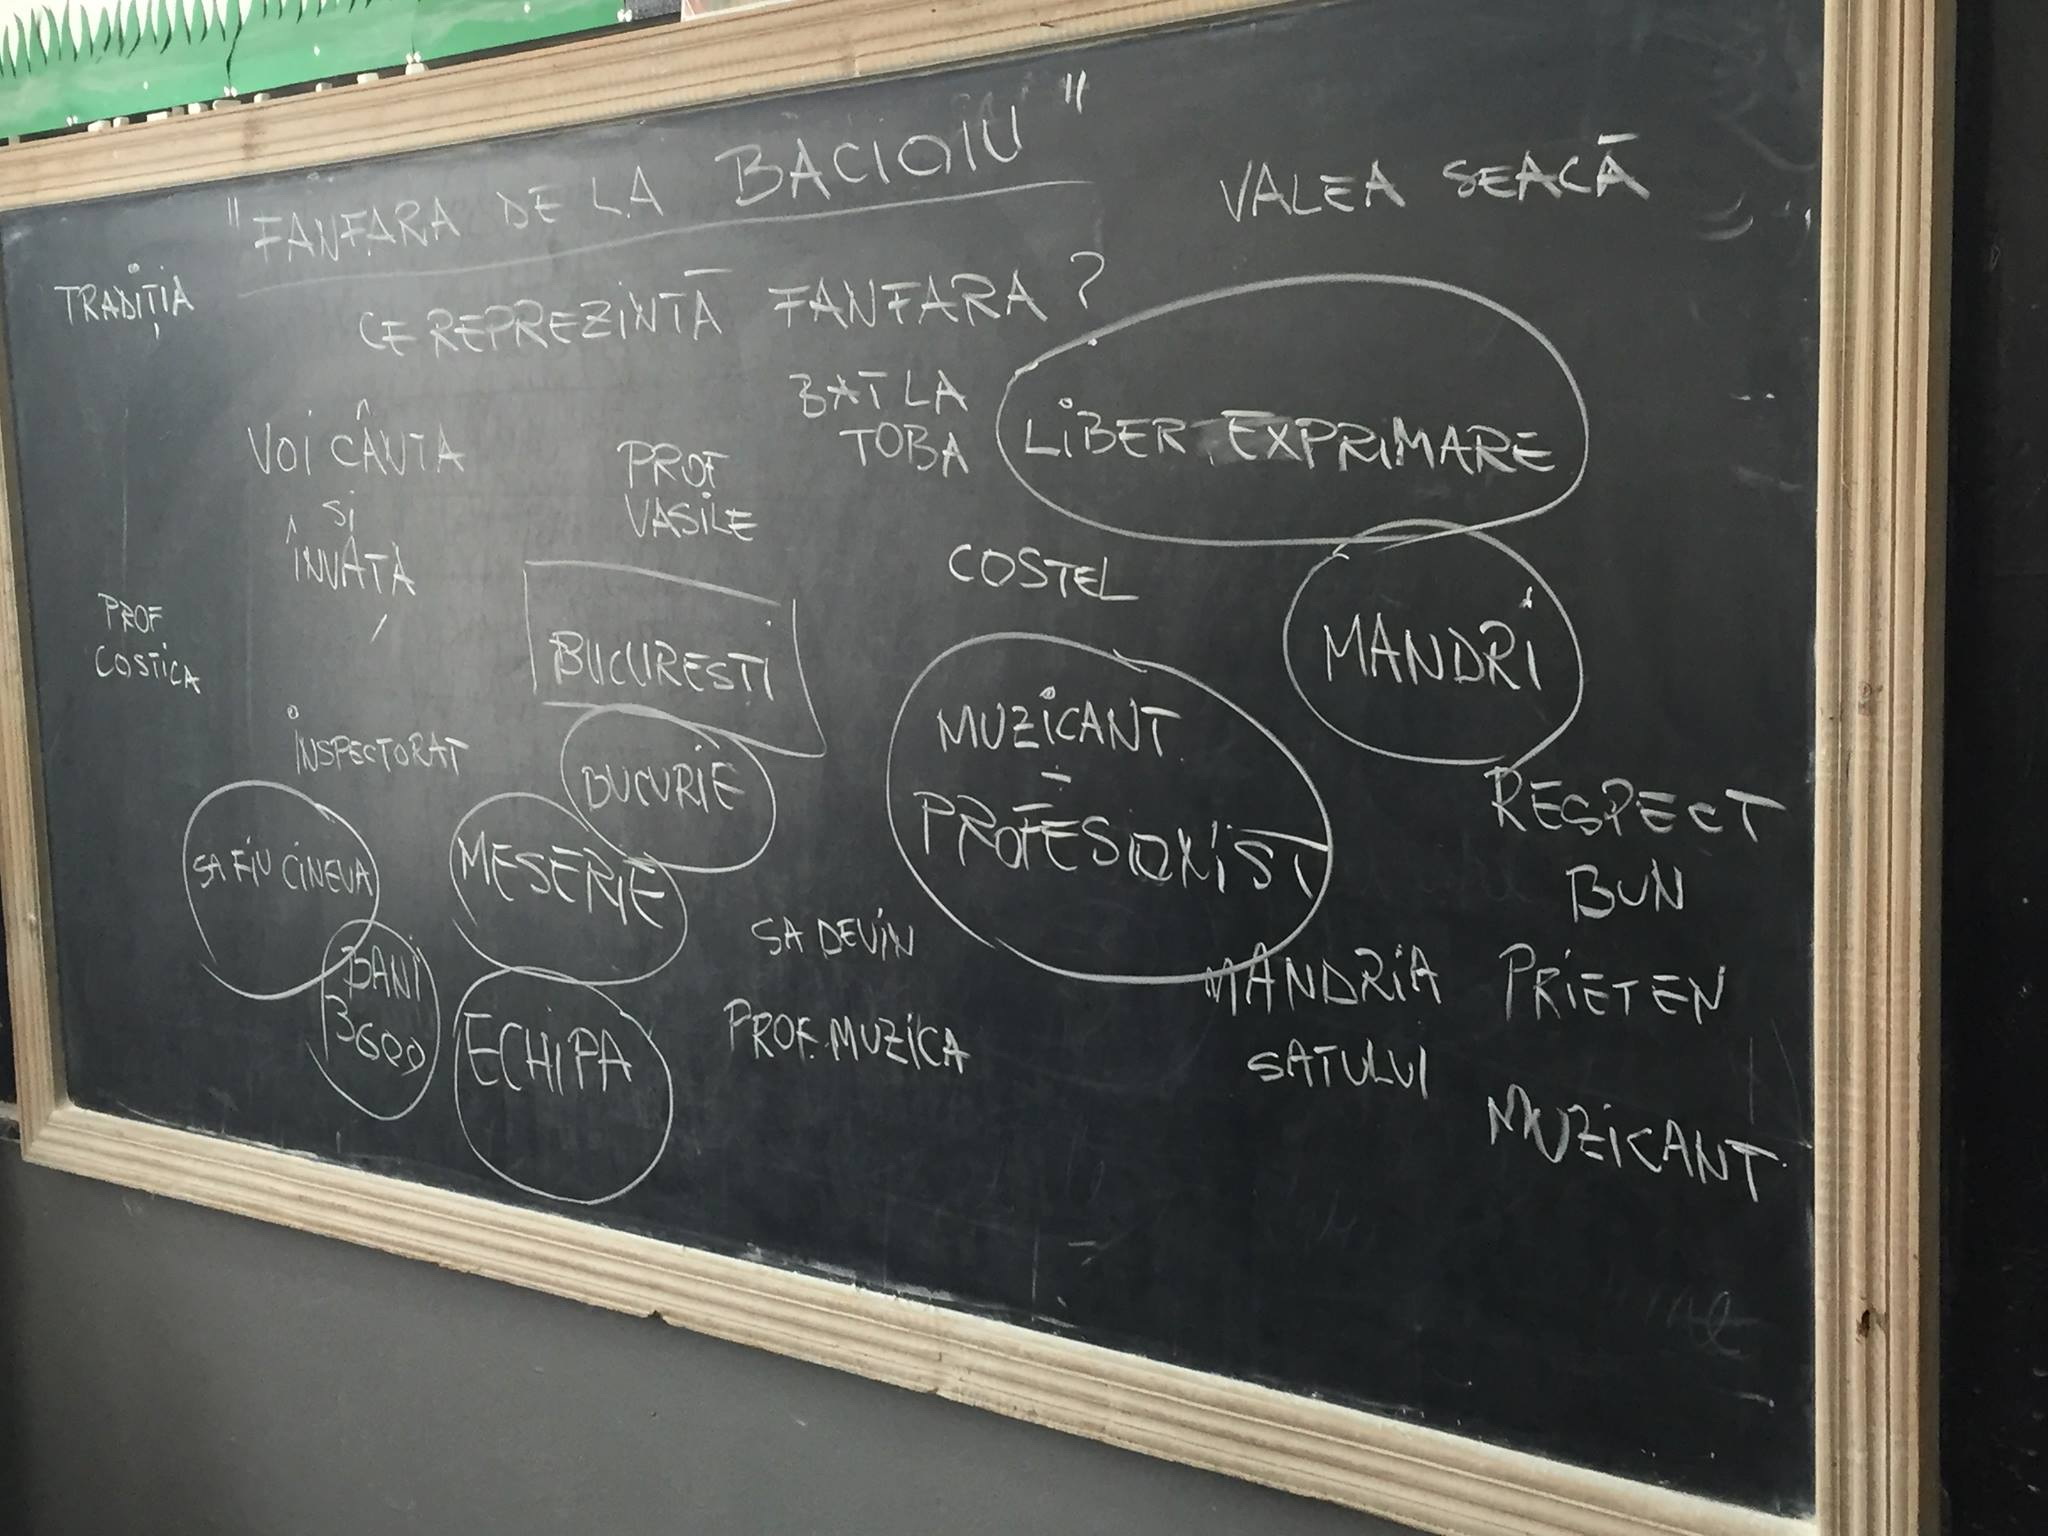 "FANFARA DE LA BACIOIU"
VALEA SEACĂ
TRADIȚIA
CE REPREZINTĂ FANFARA?
BAT LA
TOBA
LIBER EXPRIMARE
VOI CÂNTA
SI
ÎNVÂTA
PROF
VASILE
COSTEL
MANDRI
PROF
COSTICA
BUCURESTI
MUZICANT
-
PROFESIONIST
INSPECTORAT
BUCURIE
SA FIU CINEVA
MESERIE
RESPECT
BUN
PRIETEN
BANI
3600
SA DEVIN
PROF. MUZICA
MANDRIA
SATULUI
ECHIPA
MUZICANT